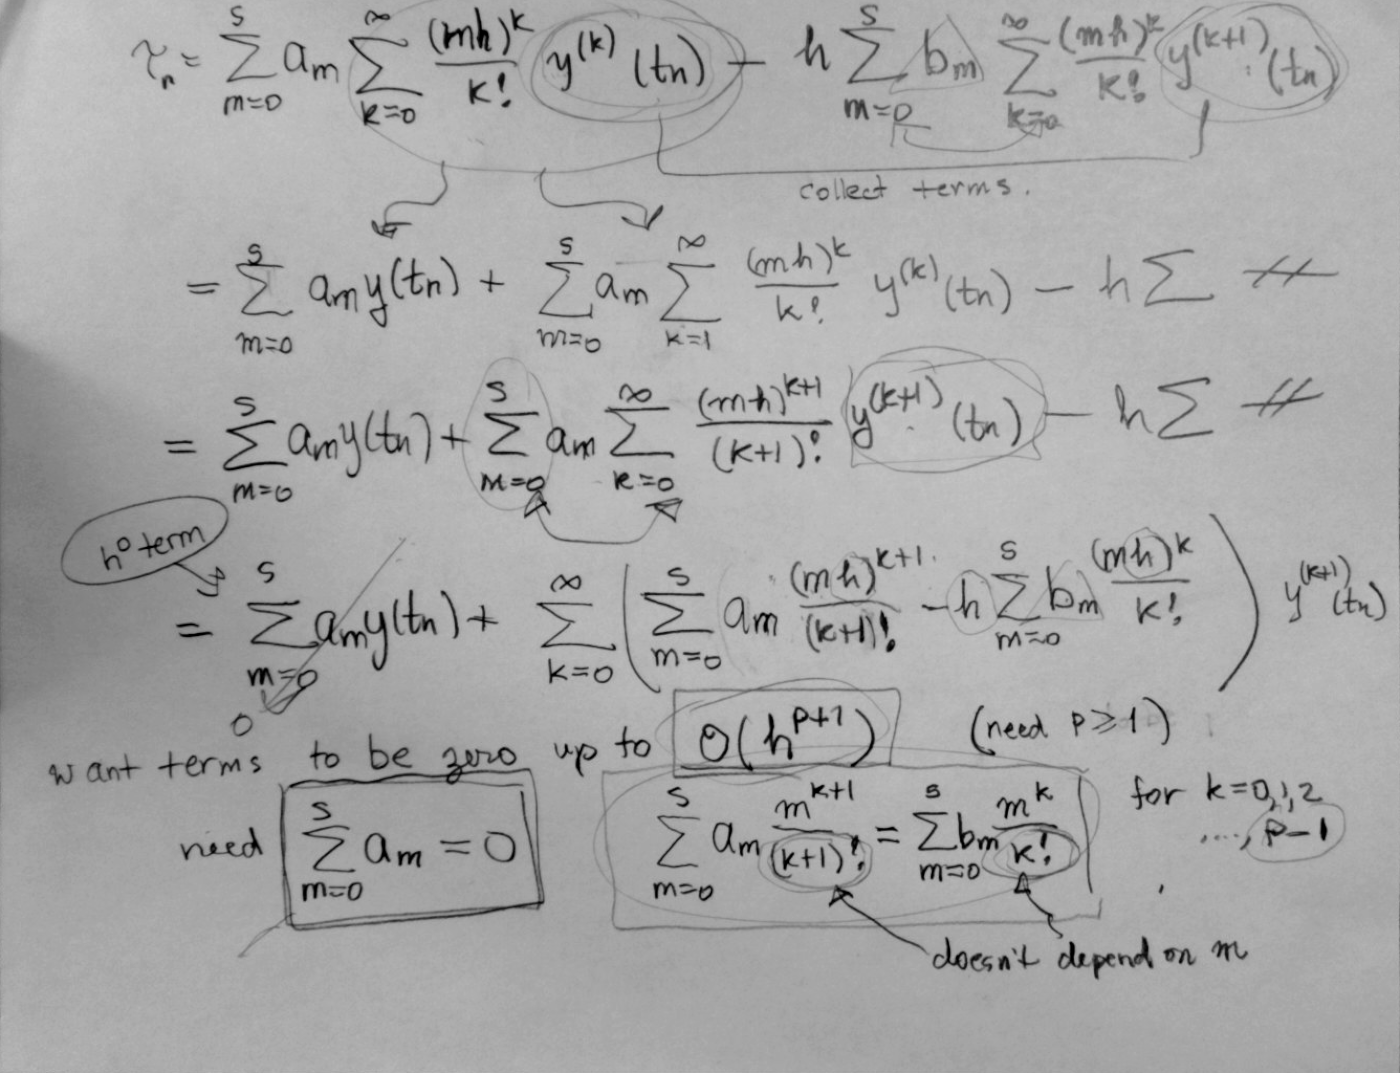 τₙ = Σ_{m=0}^{s} aₘ Σ_{k=0}^{∞} (mh)^k / k! y^{(k)}(tₙ) − h Σ_{m=0}^{s} bₘ Σ_{k=0}^{∞} (mh)^k / k! y^{(k+1)}(tₙ)
collect terms.
= Σ_{m=0}^{s} aₘ y(tₙ) + Σ_{m=0}^{s} aₘ Σ_{k=1}^{∞} (mh)^k / k! y^{(k)}(tₙ) − h Σ
= Σ_{m=0}^{s} aₘ y(tₙ) + Σ_{m=0}^{s} aₘ Σ_{k=0}^{∞} (mh)^{k+1} / (k+1)! y^{(k+1)}(tₙ) − h Σ
h⁰ term
= Σ_{m=0}^{s} aₘ y(tₙ) + Σ_{k=0}^{∞} ( Σ_{m=0}^{s} aₘ (mh)^{k+1} / (k+1)! − h Σ_{m=0}^{s} bₘ (mh)^k / k! ) y^{(k+1)}(tₙ)
0
want terms to be zero up to O(h^{p+1}) (need p ≥ 1)
need Σ_{m=0}^{s} aₘ = 0 Σ_{m=0}^{s} aₘ m^{k+1} / (k+1)! = Σ_{m=0}^{s} bₘ m^k / k! for k=0,1,2
...., p−1
doesn't depend on m